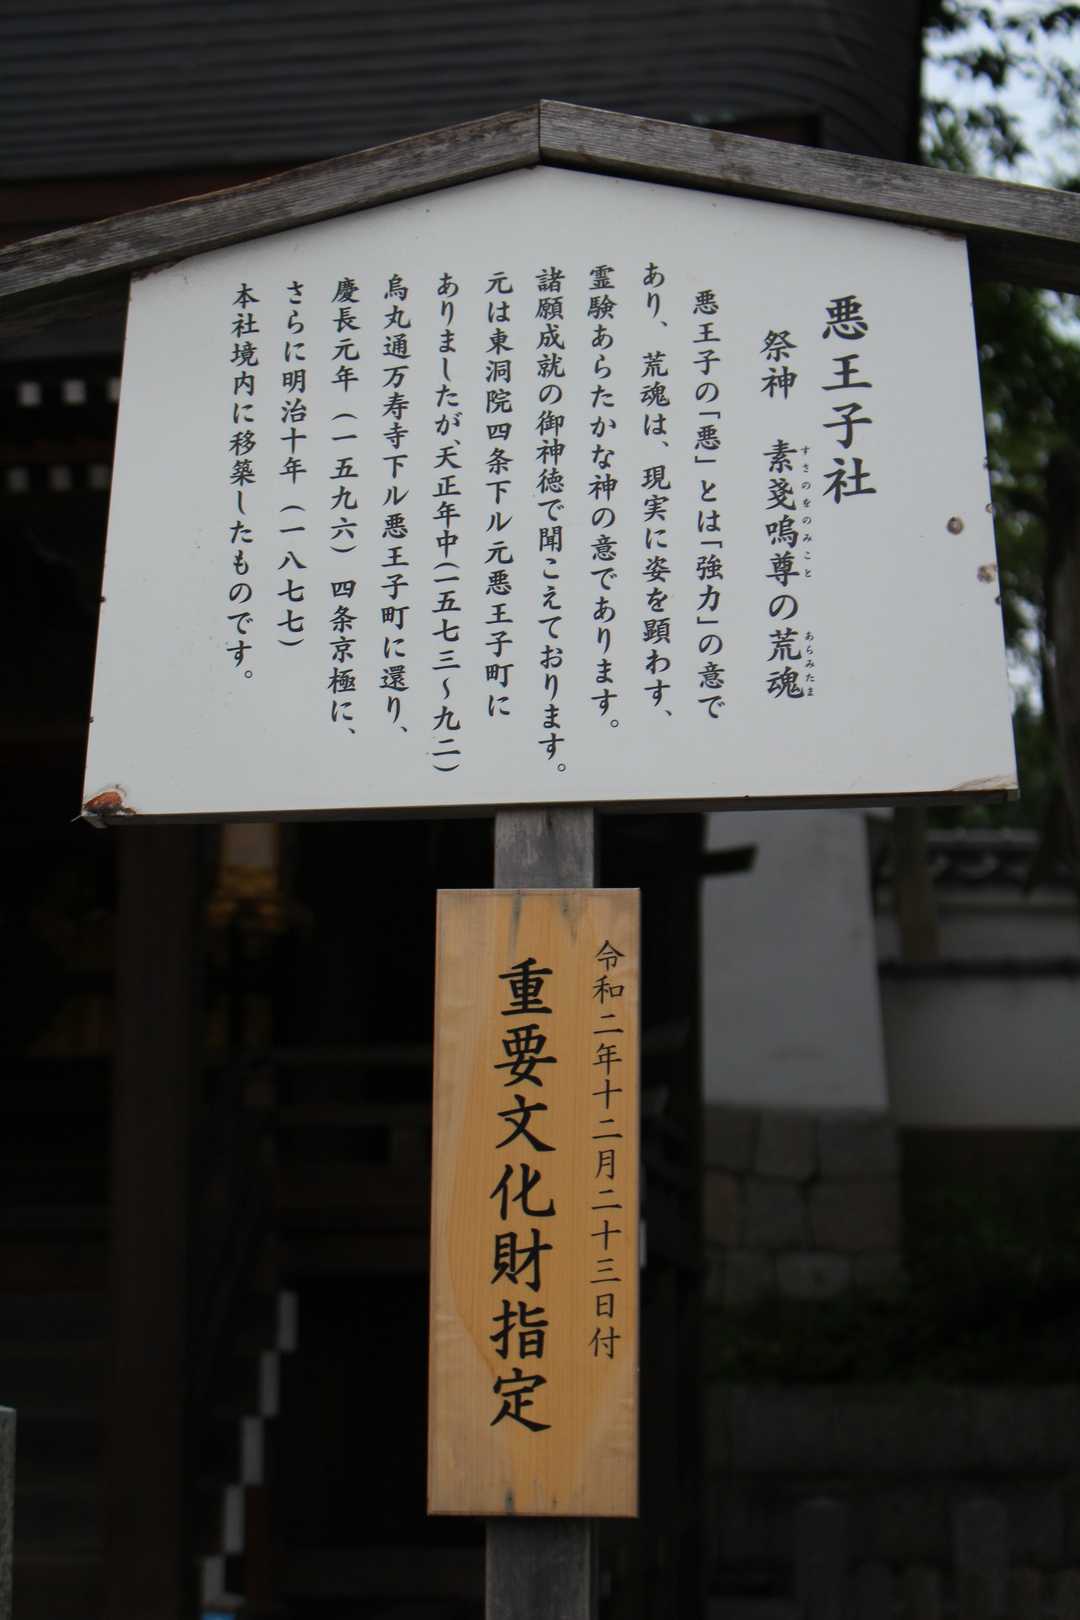 悪王子社
祭神　素戔嗚尊の荒魂
すさのをのみこと
あらみたま
悪王子の「悪」とは「強力」の意で
あり、荒魂は、現実に姿を顕わす、
霊験あらたかな神の意であります。
諸願成就の御神徳で聞こえております。
元は東洞院四条下ル元悪王子町に
ありましたが、天正年中（一五七三～九二）
烏丸通万寿寺下ル悪王子町に還り、
慶長元年（一五九六）四条京極に、
さらに明治十年（一八七七）
本社境内に移築したものです。
令和二年十二月二十三日付
重要文化財指定